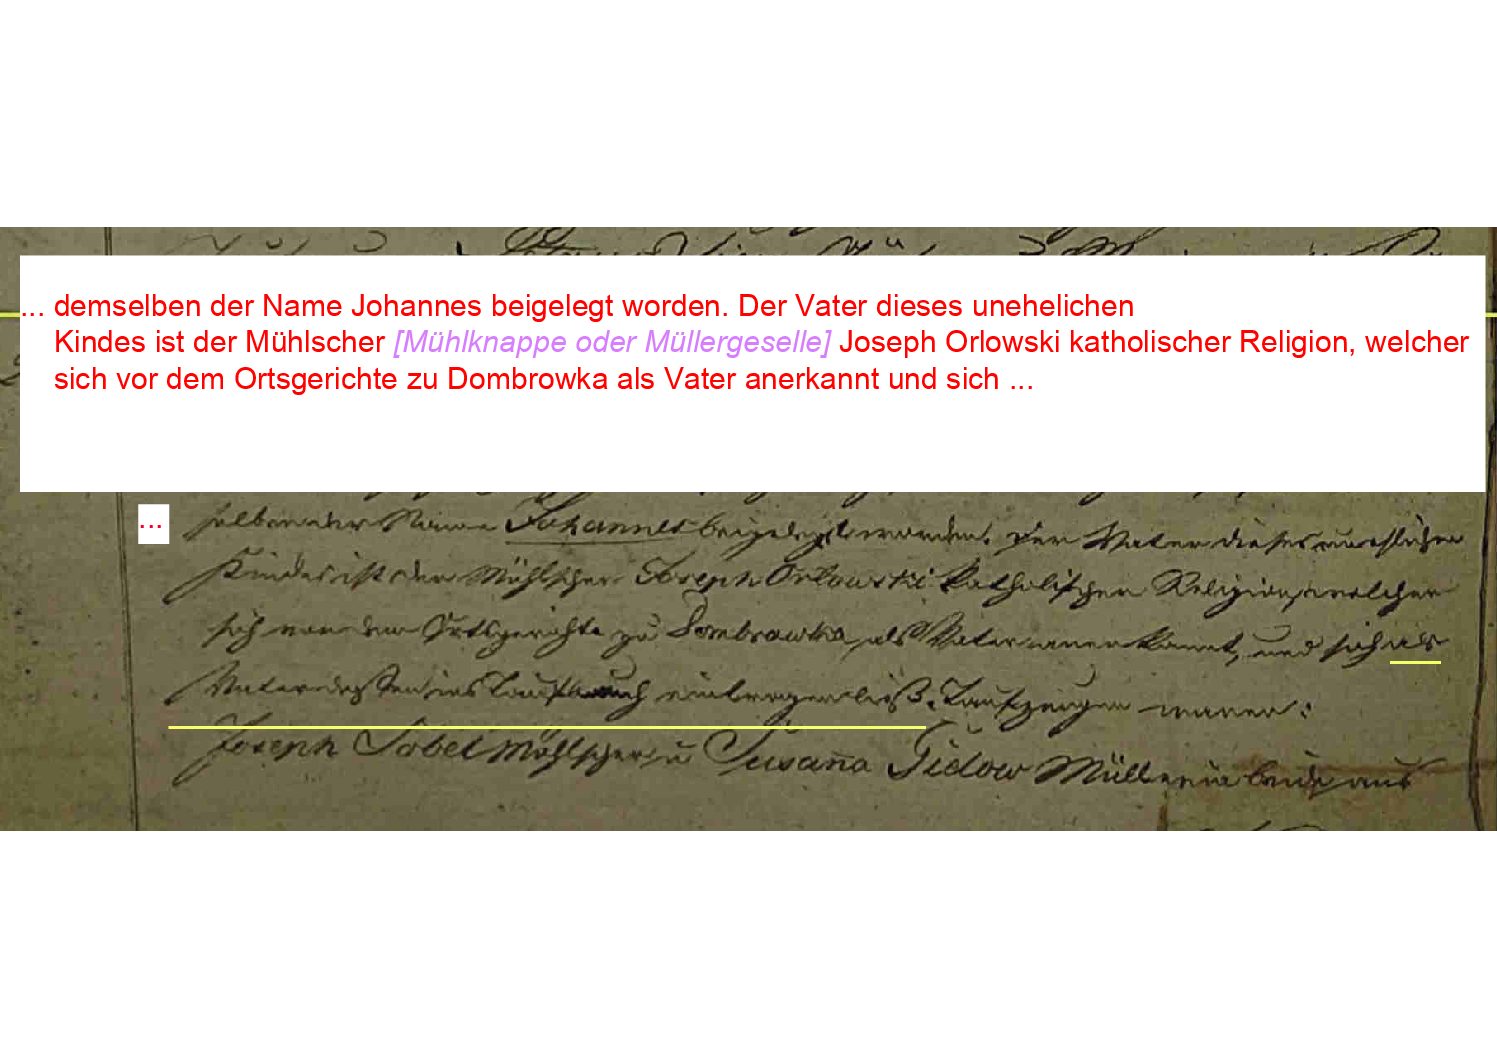 ... demselben der Name Johannes beigelegt worden. Der Vater dieses unehelichen
Kindes ist der Mühlscher [Mühlknappe oder Müllergeselle] Joseph Orlowski katholischer Religion, welcher
sich vor dem Ortsgerichte zu Dombrowka als Vater anerkannt und sich ...
...
selben der Name Johannes beigelegt worden. Der Vater dieses unehlichen
Kindes ist der Mühlscher Joseph Orlowski katholischer Religion, welcher
sich vor dem Ortsgerichte zu Dombrowka, als Vater anerkannt, und sich als
Vater desselben ins Taufbuch eintragen ließ. Taufzeugen waren:
Joseph Sobel Mühlscher, u Susana Gidow Müllerin beide aus